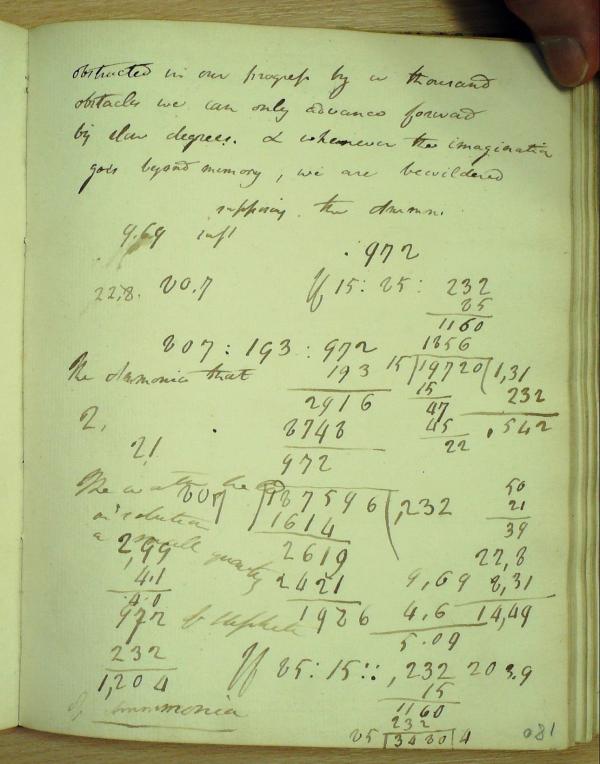 obstructed in our progress by a thousand
obstacles we can only advance forward
by slow degrees. & whenever the imagination
goes beyond memory, we are bewildered
supposing the
9.69
972
22,8. 80.7
If 15: 85: 232
85
1160
1856
807: 193: 972
15 19720 1,31
The ammonia that
193
15
232
2916
47
,542
2,
8748
45
22
21
972
The
807 187596 ,232
50
21
39
solution
1614
a small quantity
2,99
2619
22,8
4.1
2421
9,69 8,31
972
1986
4.6 14,49
5.09
232
If 85: 15:: ,232 203.9
1,204
15
1160
of ammonia
232
85 3480 4
081